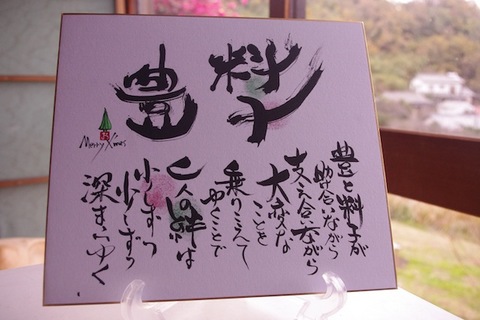 料子
豊
Merry X'mas
豊と料子が
助け合いながら
支え合いながら
大変な
ことを
乗りこえて
ゆくことで
二人の絆は
少しずつ
少しずつ
深まりゆく